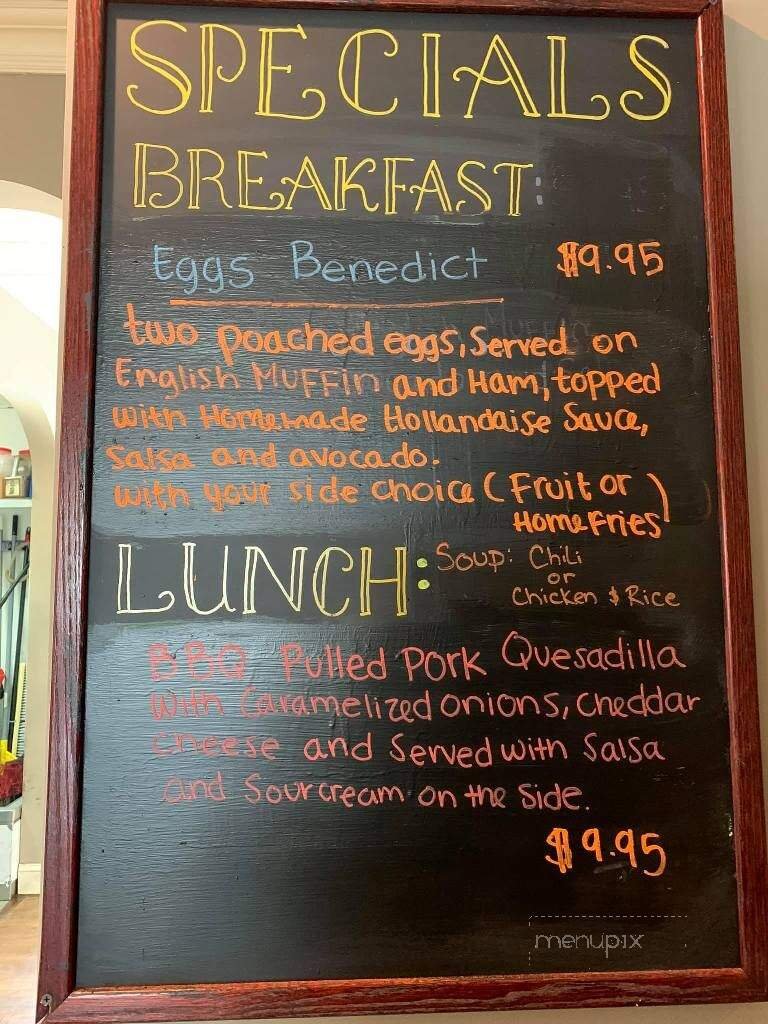 SPECIALS
BREAKFAST:
Eggs Benedict $9.95
two poached eggs, Served on
English Muffin and Ham, topped
with Homemade Hollandaise Sauce,
Salsa and avocado.
with your side choice (Fruit or
Home Fries)
LUNCH: Soup: Chili
or
Chicken & Rice
BBQ Pulled Pork Quesadilla
with Caramelized onions, Cheddar
Cheese and Served with Salsa
and Sour cream on the Side.
$9.95
menupix